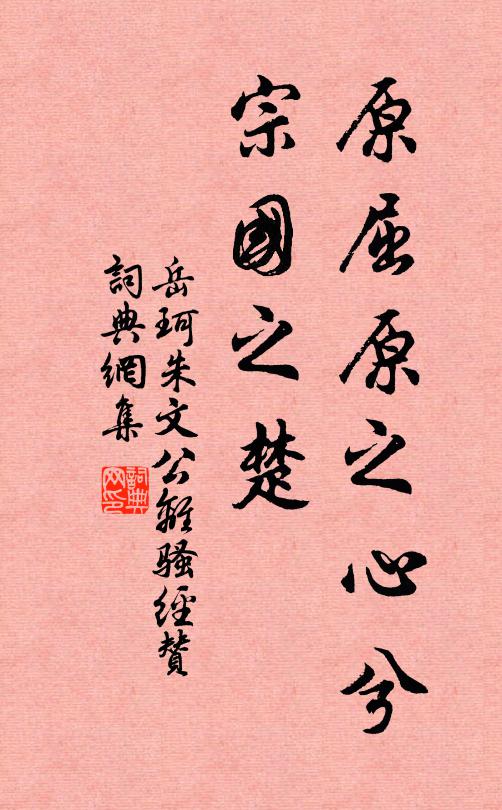 原屈原之心兮
宗國之楚
岳珂朱文公離騷經贊
詞典網集
詞典
网印